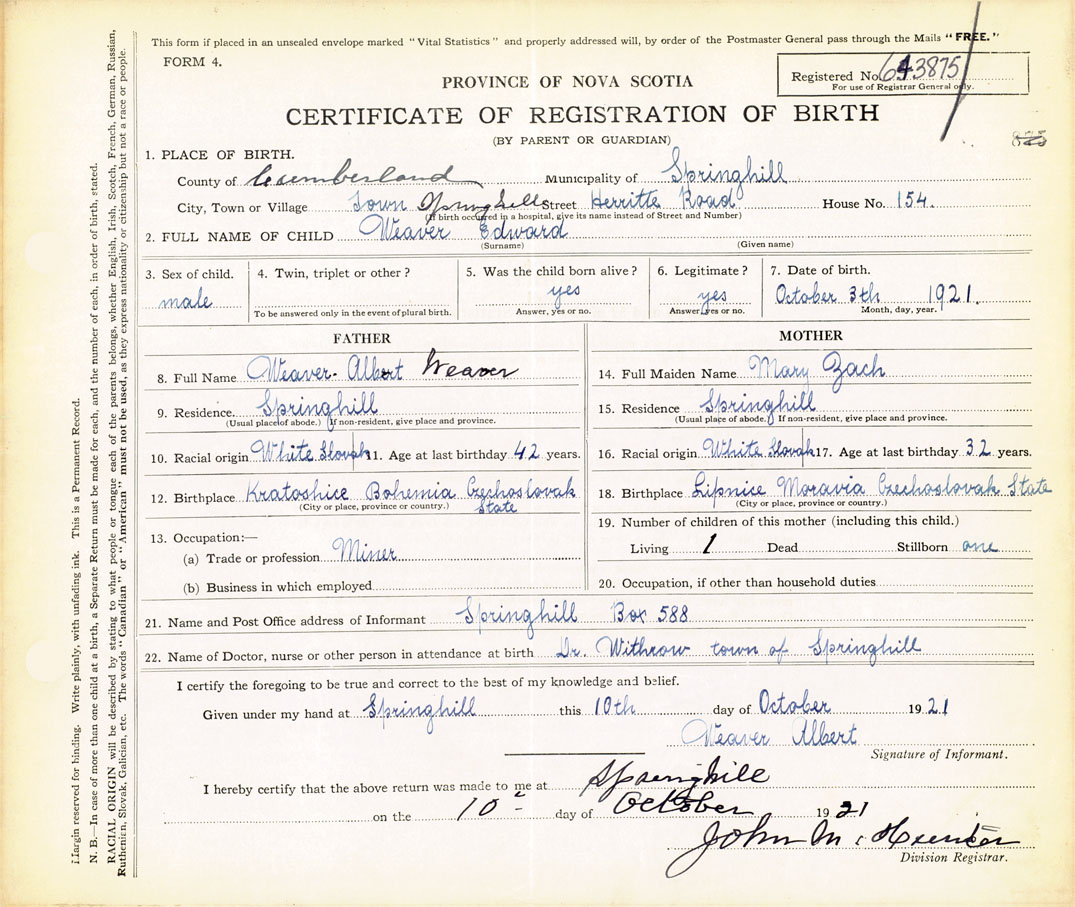 This form if placed in an unsealed envelope marked "Vital Statistics" and properly addressed will, by order of the Postmaster General pass through the Mails "FREE."
FORM 4.
Registered No. 643875
For use of Registrar General only.
PROVINCE OF NOVA SCOTIA
CERTIFICATE OF REGISTRATION OF BIRTH
(BY PARENT OR GUARDIAN)
1. PLACE OF BIRTH.
County of Cumberland Municipality of Springhill
City, Town or Village Town Springhill Street Herritte Road House No. 154.
(If birth occurred in a hospital, give its name instead of Street and Number)
2. FULL NAME OF CHILD Weaver Edward
(Surname) (Given name)
3. Sex of child. 4. Twin, triplet or other? 5. Was the child born alive? 6. Legitimate? 7. Date of birth.
male yes yes October 3th 1921.
To be answered only in the event of plural birth. Answer, yes or no. Answer, yes or no. Month, day, year.
FATHER
8. Full Name Weaver- Albert Weaver
9. Residence. Springhill
(Usual place of abode.) If non-resident, give place and province.
10. Racial origin White Slovak 11. Age at last birthday 42 years.
12. Birthplace Kratoshice Bohemia Czechoslovak
(City or place, province or country.) State
13. Occupation:—
(a) Trade or profession Miner
(b) Business in which employed
MOTHER
14. Full Maiden Name Mary Zach
15. Residence Springhill
(Usual place of abode.) If non-resident, give place and province.
16. Racial origin White Slovak 17. Age at last birthday 32 years.
18. Birthplace Lipnice Moravia Czechoslovak State
(City or place, province or country.)
19. Number of children of this mother (including this child.)
Living 1 Dead Stillborn one
20. Occupation, if other than household duties
21. Name and Post Office address of Informant Springhill Box 588
22. Name of Doctor, nurse or other person in attendance at birth Dr. Withrow town of Springhill
I certify the foregoing to be true and correct to the best of my knowledge and belief.
Given under my hand at Springhill this 10th day of October 1921
Weaver Albert
Signature of Informant.
I hereby certify that the above return was made to me at Springhill
on the 10 day of October 1921
John M. Hunter
Division Registrar.
Margin reserved for binding. Write plainly, with unfading ink. This is a Permanent Record.
N. B.—In case of more than one child at a birth, a Separate Return must be made for each, and the number of each, in order of birth, stated.
RACIAL ORIGIN will be described by stating to what people or tongue each of the parents belongs, whether English, Irish, Scotch, French, German, Russian,
Ruthenian, Slovak, Galician, etc. The words "Canadian" or "American" must not be used, as they express nationality or citizenship but not a race or people.